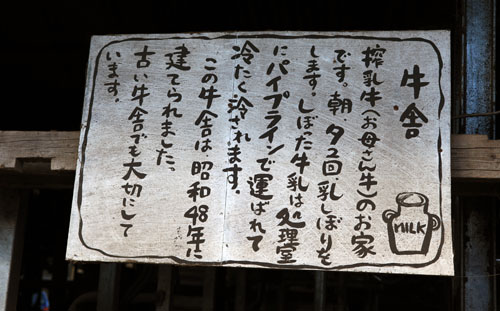 牛舎
搾乳牛(お母さん牛)のお家
です。朝夕2回、乳しぼりを
します。しぼった牛乳は処理室
にパイプラインで運ばれて
冷たく冷されます。
この牛舎は昭和48年に
建てられました。
古い牛舎でも大切にして
います。
MILK